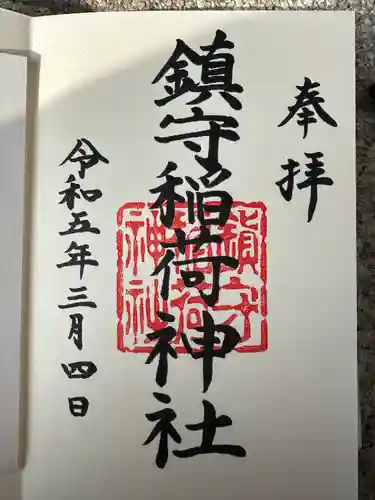 奉拝
鎮守稲荷神社
鎮守
稲荷
神社
令和五年三月四日